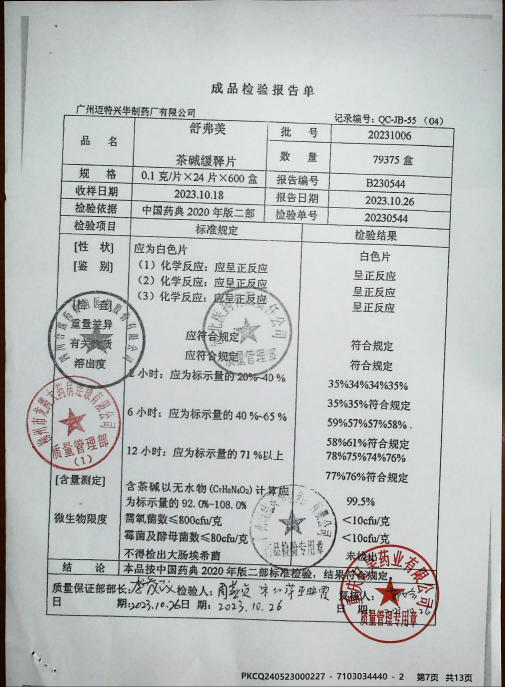 成品检验报告单
广州迈特兴华制药厂有限公司 记录编号：QC-JB-55 （04）
品 名 舒弗美 茶碱缓释片 批 号 20231006
数 量 79375 盒
规 格 0.1 克/片×24 片×600 盒 报告编号 B230544
收样日期 2023.10.18 报告日期 2023.10.26
检验依据 中国药典 2020 年版二部 检验单号 20230544
检验项目 标准规定 检验结果
[性 状] 应为白色片 白色片
[鉴 别] （1）化学反应：应呈正反应 呈正反应
（2）化学反应：应呈正反应 呈正反应
（3）化学反应：应呈正反应 呈正反应
[检 查]
重量差异 应符合规定 符合规定
有关物质 应符合规定 符合规定
溶出度 2 小时：应为标示量的 20%-40 % 35%34%34%35%
35%35%符合规定
6 小时：应为标示量的 40%-65 % 59%57%57%58%
58%61%符合规定
12 小时：应为标示量的 71 %以上 78%75%74%76%
77%76%符合规定
[含量测定] 含茶碱以无水物 (C₇H₈N₄O₂) 计算应
为标示量的 92.0%-108.0% 99.5%
微生物限度 需氧菌数≤800cfu/克 <10cfu/克
霉菌及酵母菌数≤80cfu/克 <10cfu/克
不得检出大肠埃希菌 未检出
结 论 本品按中国药典 2020 年版二部标准检验，结果符合规定
质量保证部部长： 检验人： 复核人：
日 期：2023.10.26 日 期：2023.10.26 日 期：
质量管理部
质量管理部
（1）
质量管理专用章
PKCQ240523000227 - 7103034440 - 2 第7页 共13页